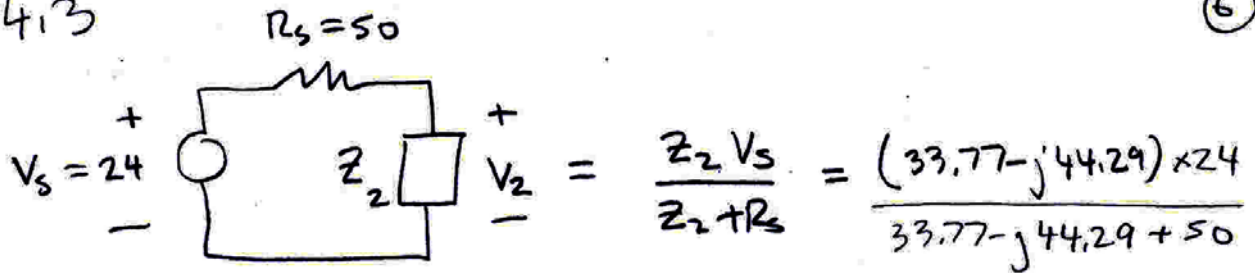 4.3
6
Rs = 50
+ +
Vs = 24 Z2 V2 = Z2 Vs / Z2 + Rs = (33.77 - j44.29) × 24 / 33.77 - j44.29 + 50
− −